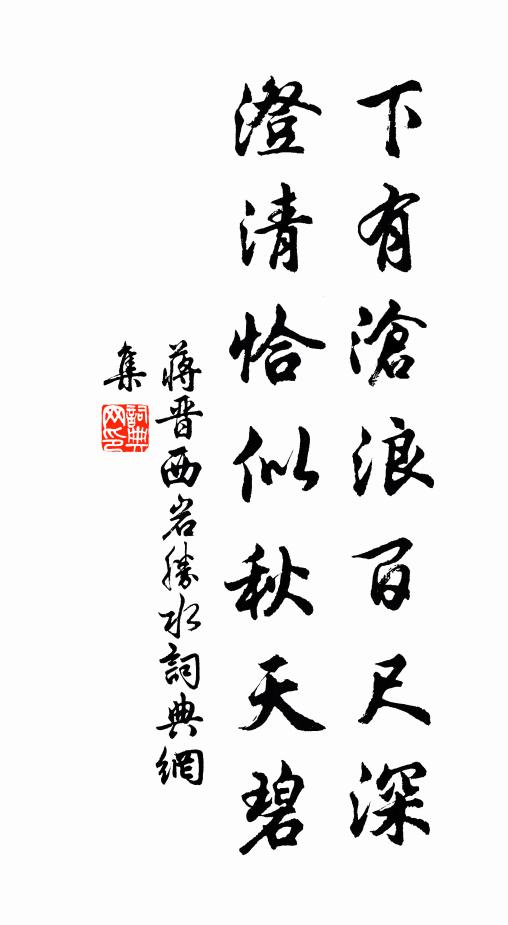 下有滄浪百尺深
澄清恰似秋天碧
蔣晋西岩勝水詞典網
集
詞典网印